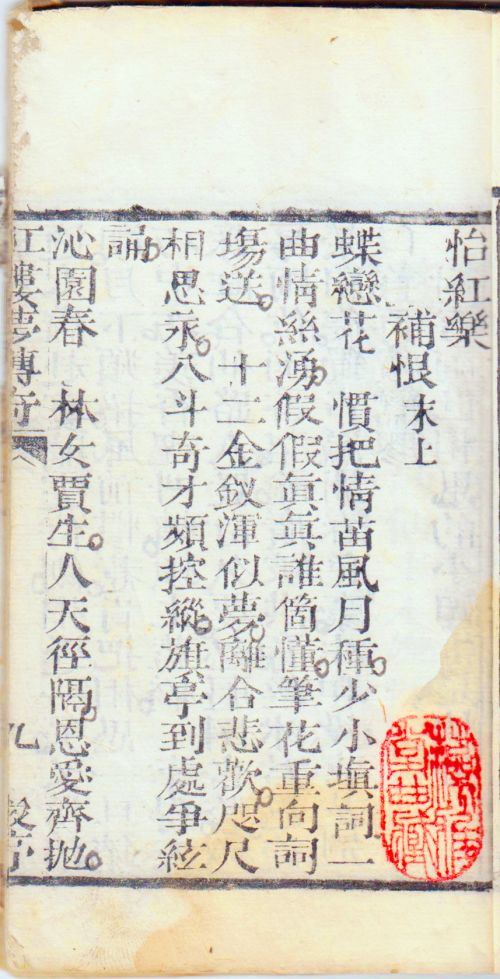 怡紅樂
補恨 末上
蝶戀花 慣把情苗風月種。少小塡詞一
曲情絲湧。假假眞眞誰箇懂。筆花重向詞
塲送。 十二金釵渾似夢。離合悲歡。咫尺
相思永。八斗奇才頻控縱。旗亭到處爭絃
誦。
沁園春 林女賈生。人天徑隔。恩愛齊拋。
紅樓夢傳奇 九